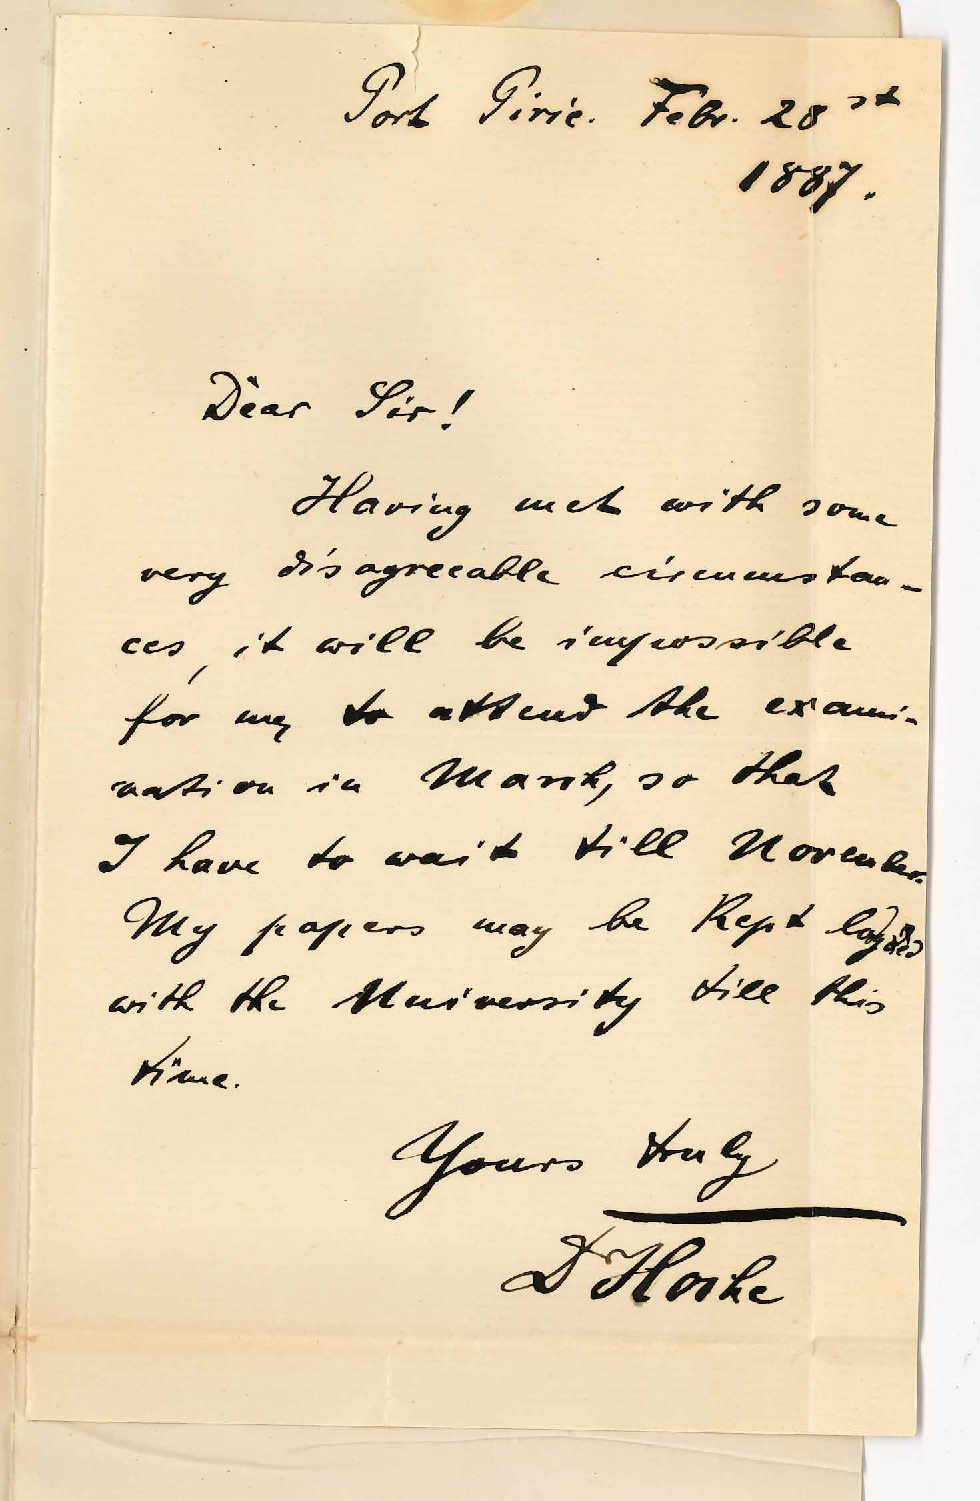 Port Pirie. Febr. 28st
1887.
Dear Sir!
Having met with some
very disagreeable circumstan-
ces, it will be impossible
for me, to attend the exami-
nation in March, so that
I have to wait till November.
My papers may be Kept
with the University till this
time.
Yours truly
Dr